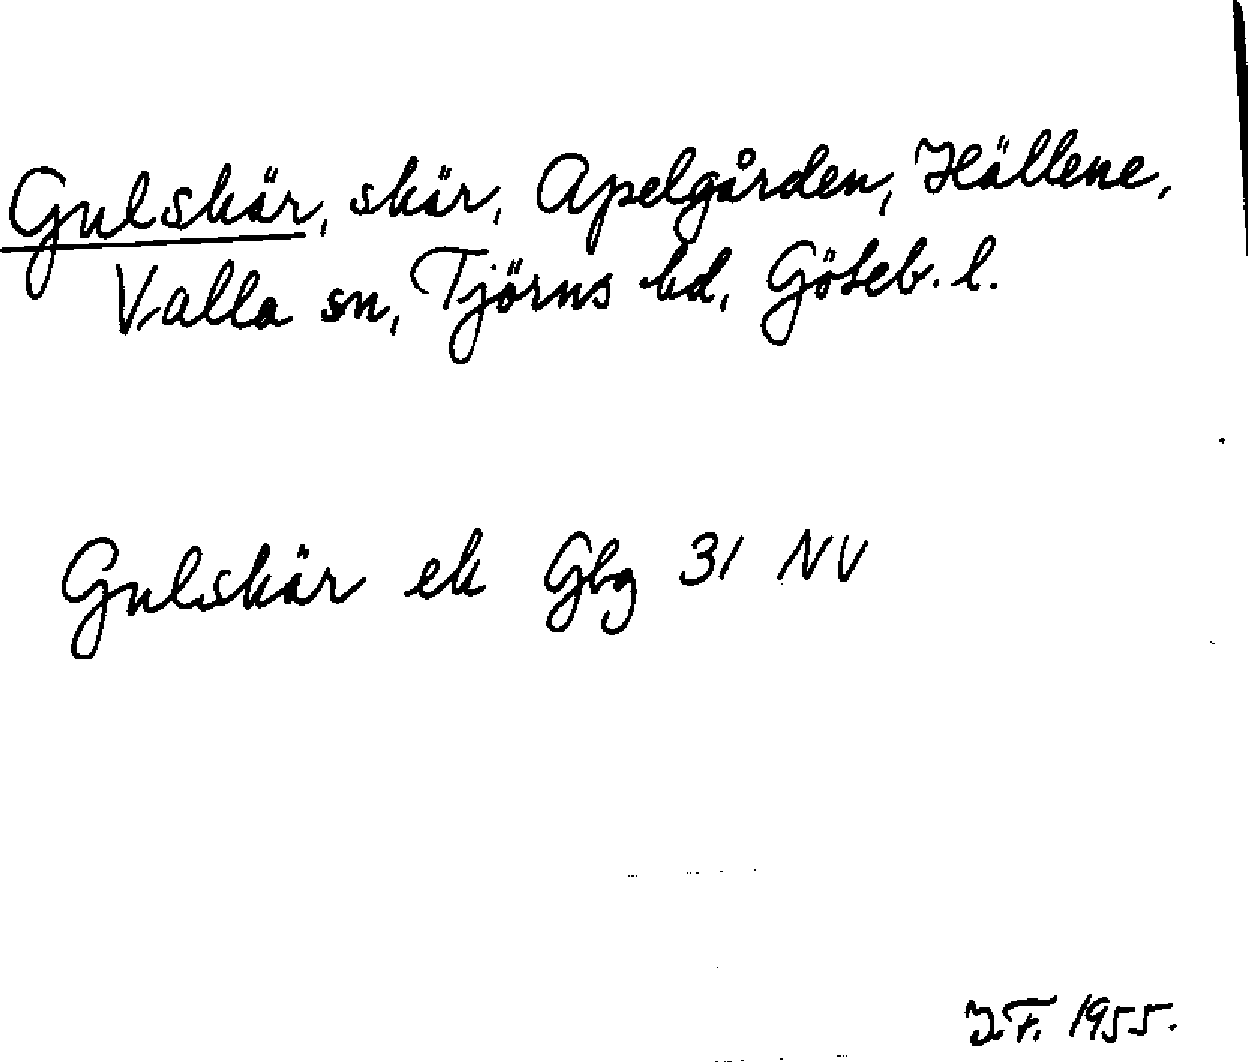 Gulskär, skär, Apelgården, Hällene,
Valla sn, Tjörns hd, Göteb. l.
Gulskär ek Gbg 31 NV
J.F. 1955.